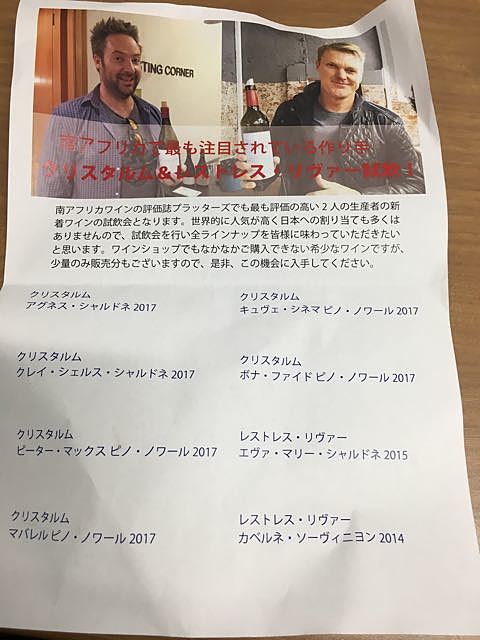 TING CORNER
南アフリカで最も注目されている作り手
クリスタルム＆レストレス・リヴァー試飲！
南アフリカワインの評価誌プラッターズでも最も評価の高い2人の生産者の新
着ワインの試飲会となります。世界的に人気が高く日本への割り当ても多くは
ありませんので、試飲会を行い全ラインナップを皆様に味わっていただきたい
と思います。ワインショップでもなかなかご購入できない希少なワインですが、
少量のみ販売分もございますので、是非、この機会に入手してください。
クリスタルム
アグネス・シャルドネ 2017
クリスタルム
キュヴェ・シネマ ピノ・ノワール 2017
クリスタルム
クレイ・シェルス・シャルドネ 2017
クリスタルム
ボナ・ファイド ピノ・ノワール 2017
クリスタルム
ピーター・マックス ピノ・ノワール 2017
レストレス・リヴァー
エヴァ・マリー・シャルドネ 2015
クリスタルム
マバレル ピノ・ノワール 2017
レストレス・リヴァー
カベルネ・ソーヴィニヨン 2014